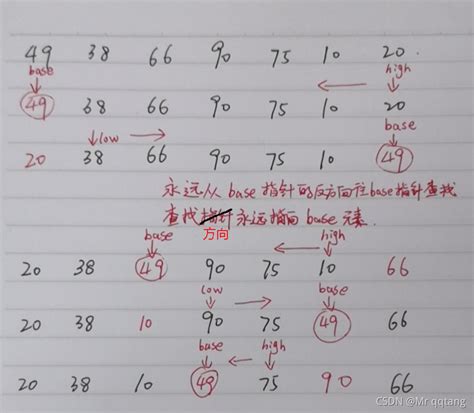 49 38 66 90 75 10 20.
base high
49 38 66 90 75 10 20
low base
20 38 66 90 75 10 49
永远从base指针的反方向往base指针查找
查找指针永远指向base元素.
方向
base high
20 38 49 90 75 10 66
low base
20 38 10 90 75 49 66
base high
20 38 10 49 75 90 66
CSDN @Mr.qqtang